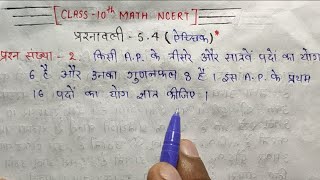 [CLASS-10th MATH NCERT]
प्रश्नावली - 5.4 (ऐच्छिक)*
प्रश्न संख्या - 2. किसी A.P. के तीसरे और सातवें पदों का योग
6 है और उनका गुणनफल 8 है। इस A.P. के प्रथम
16 पदों का योग ज्ञात कीजिए।